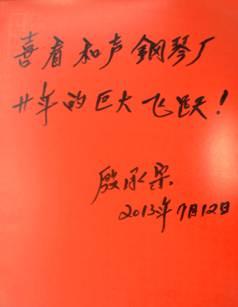 喜看和声鋼琴厂
廿年的巨大飞跃！
殷承宗
2013年7月12日